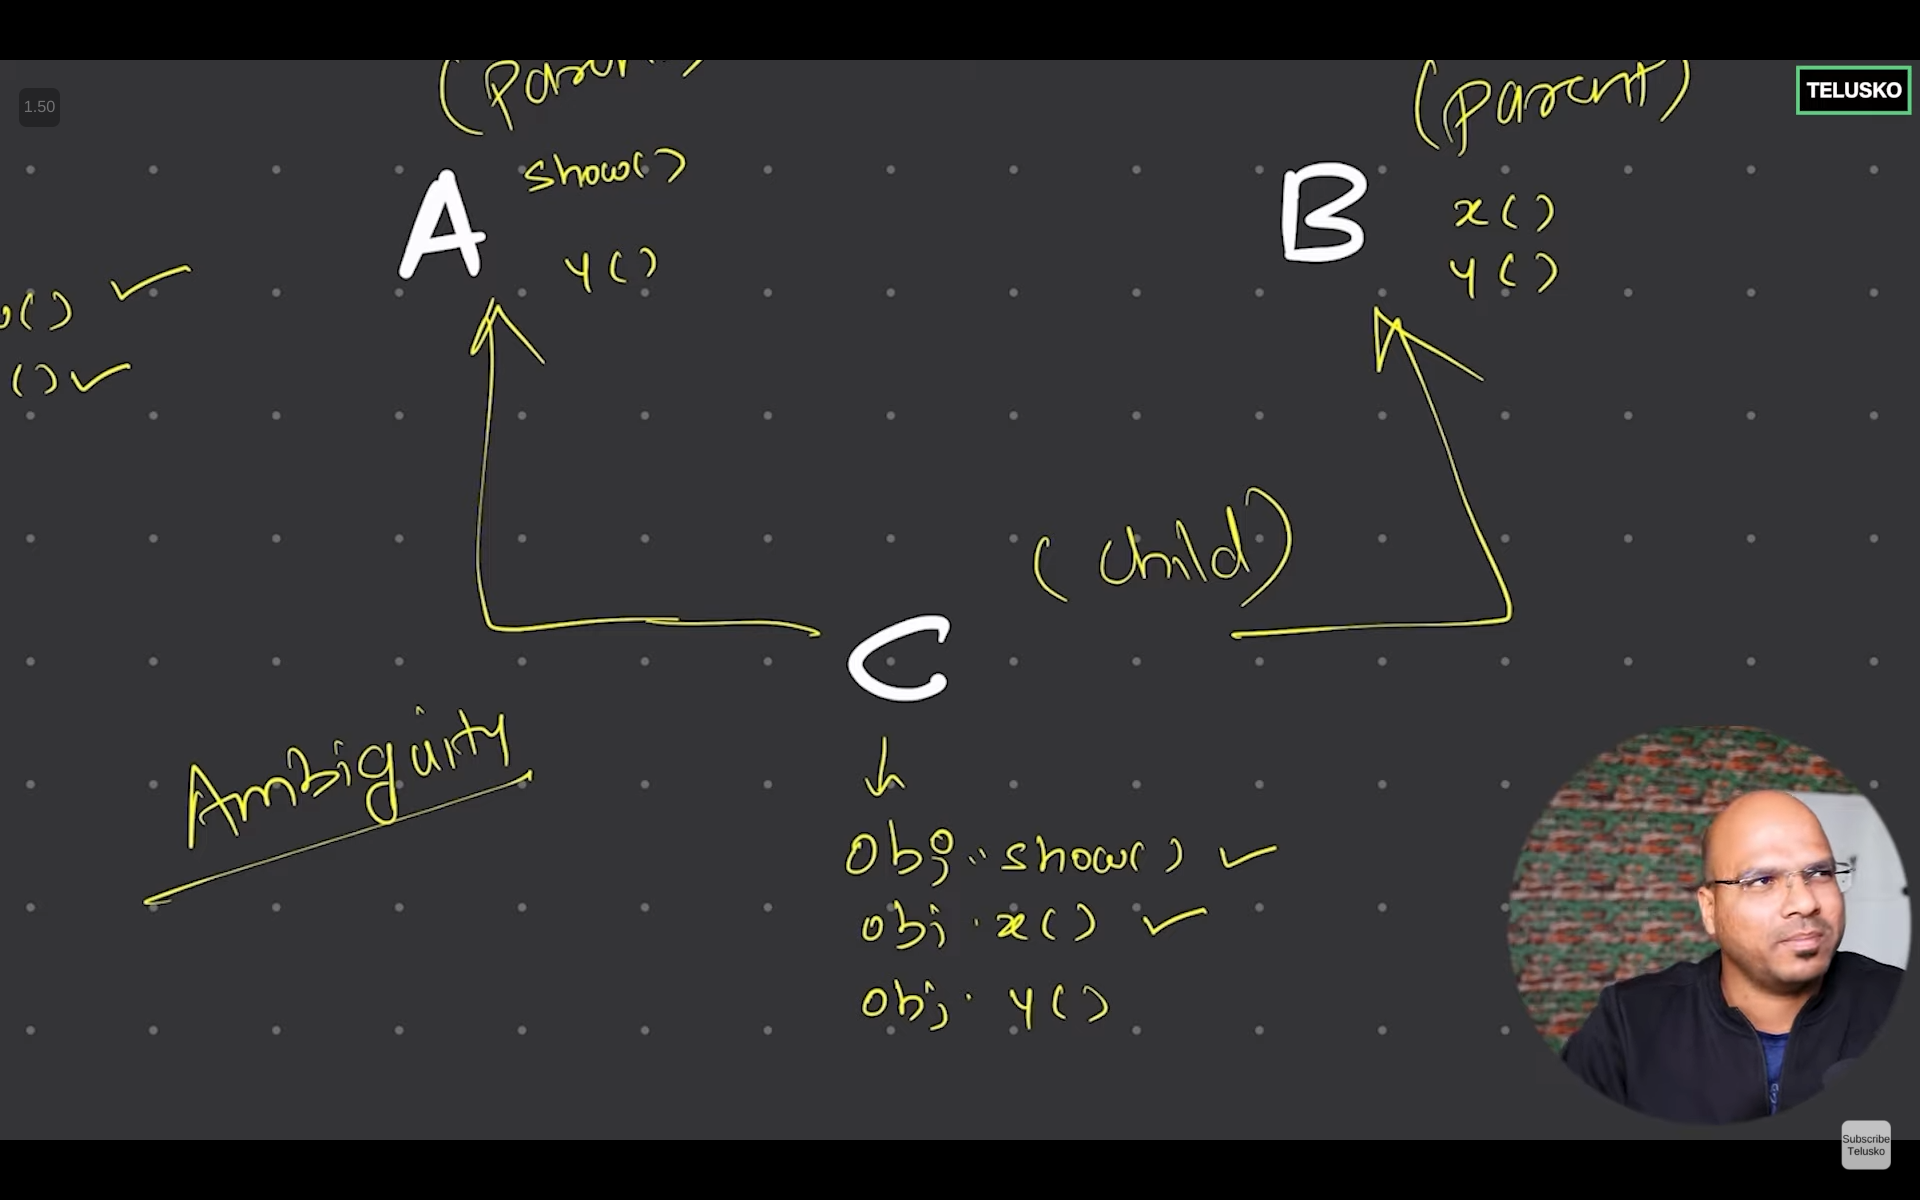 1.50
TELUSKO
(parent)
A
show()
y()
(parent)
B
x()
y()
()
()
(child)
C
Ambiguity
obj.show()
obj.x()
obj.y()
Subscribe
Telusko